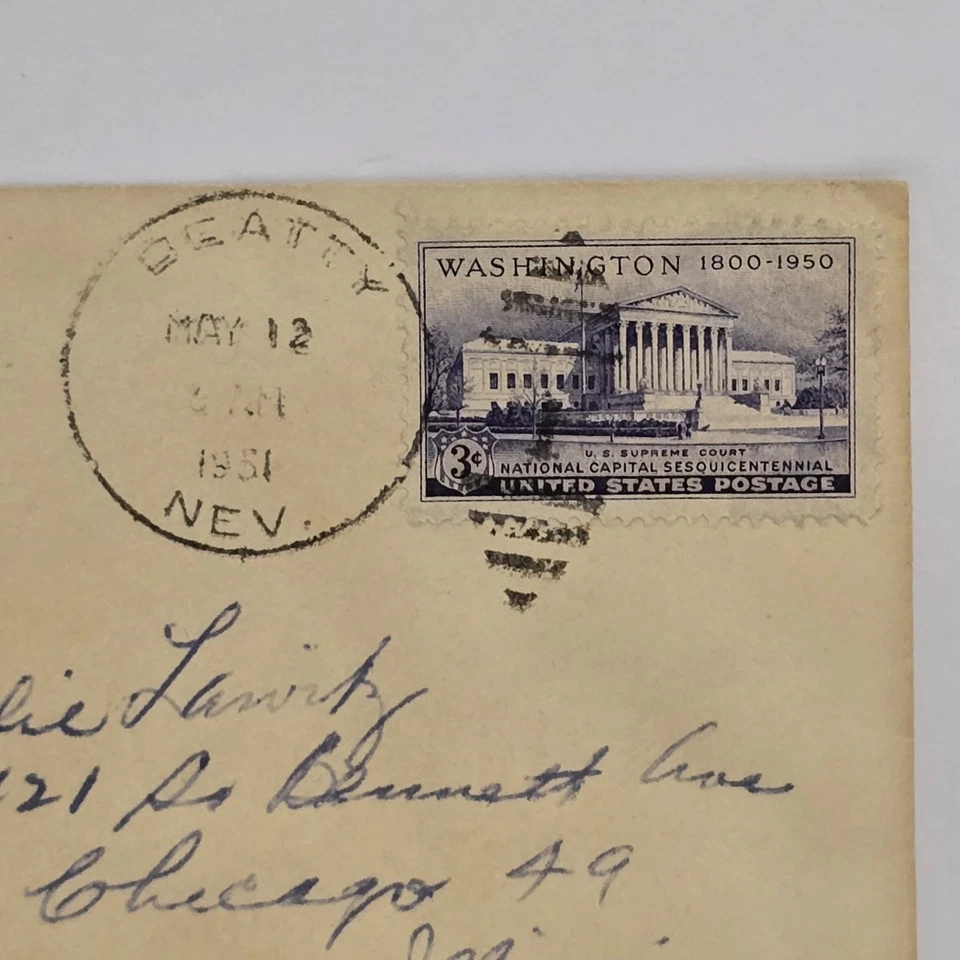 BEATTY
MAY 12
AM
1951
NEV.
WASHINGTON 1800-1950
U. S. SUPREME COURT
3¢ NATIONAL CAPITAL SESQUICENTENNIAL
UNITED STATES POSTAGE
lie Lawitz
121 So Bennett Ave
Chicago 49